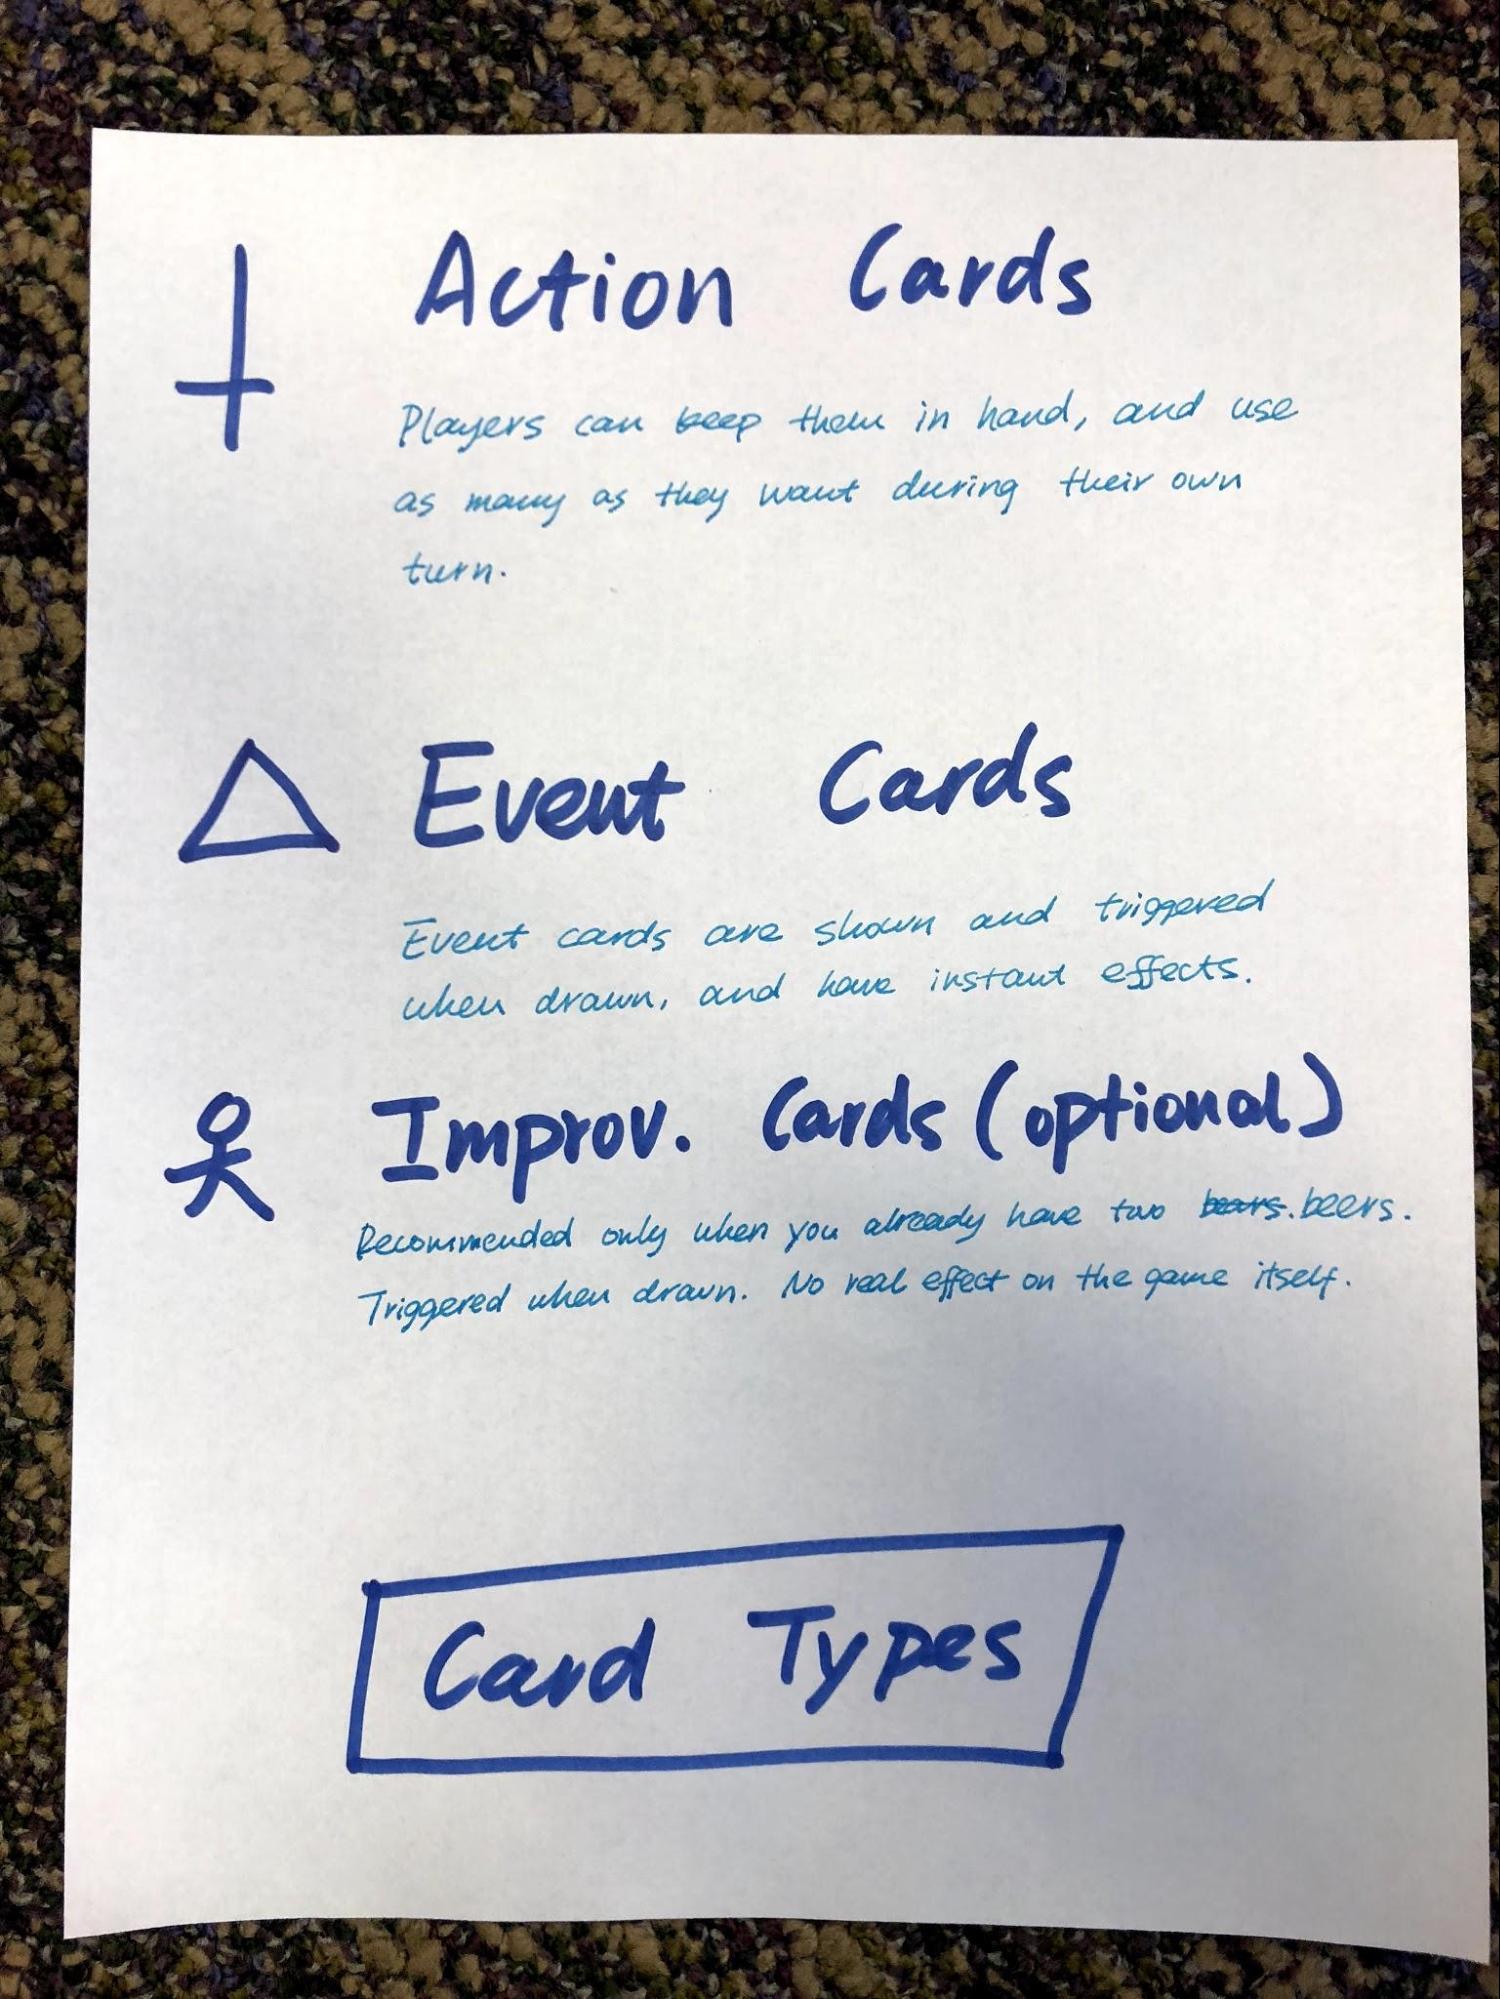 Action Cards
Players can keep them in hand, and use
as many as they want during their own
turn.
Event Cards
Event cards are shown and triggered
when drawn, and have instant effects.
Improv. Cards (optional)
Recommended only when you already have two bears. beers.
Triggered when drawn. No real effect on the game itself.
Card Types